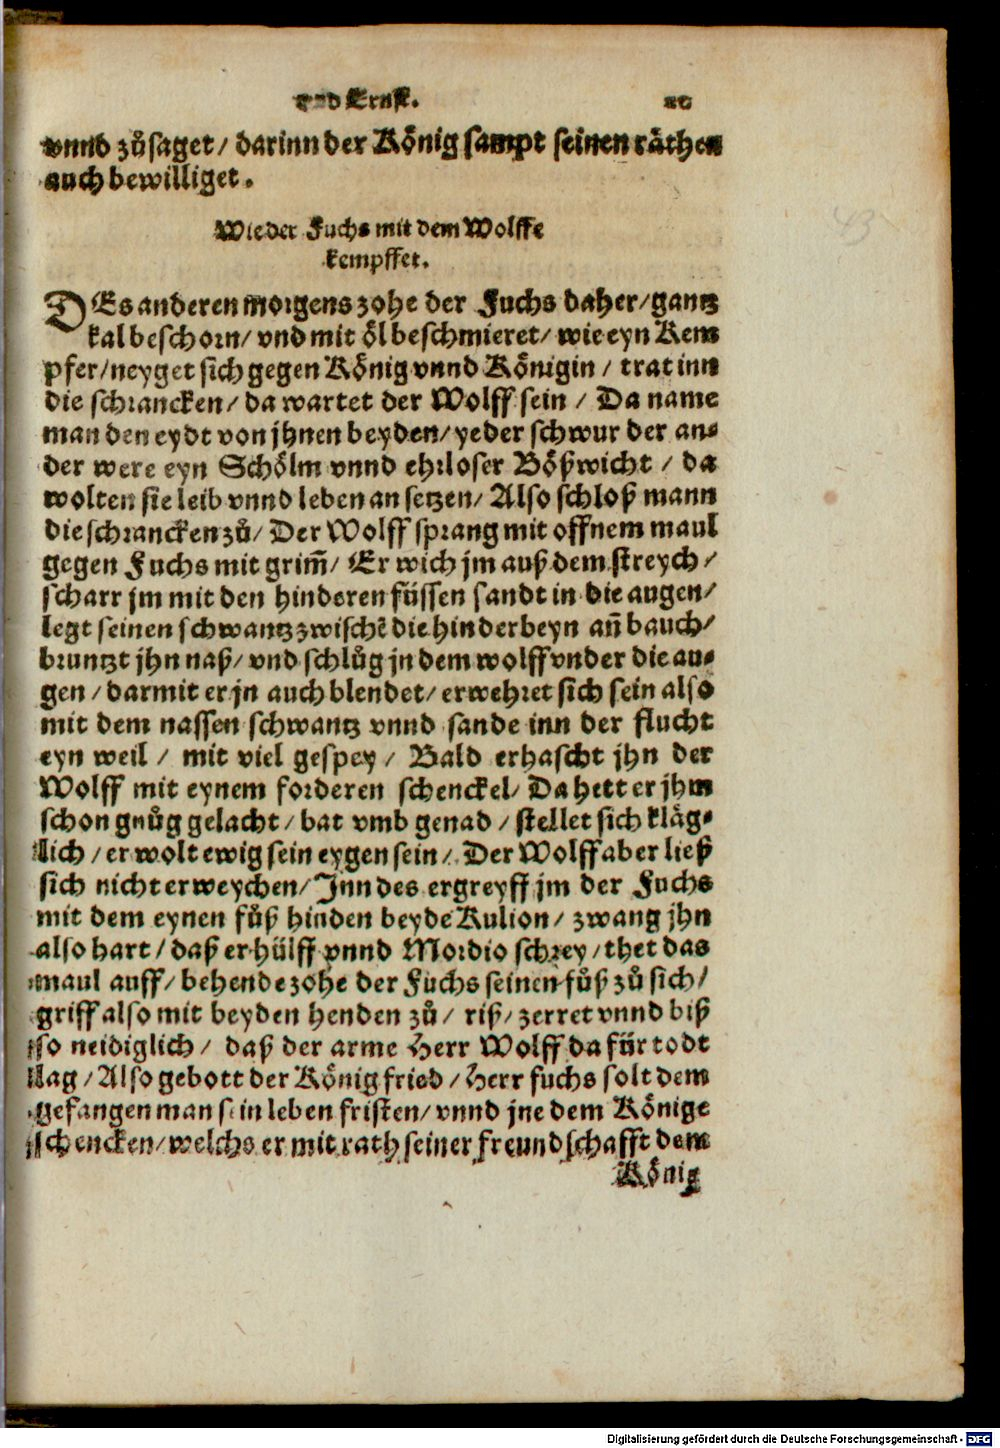 vnd Ernst.
vnnd zůsaget/ darinn der König sampt seinen räthen
auch bewilliget.
Wie der Fuchs mit dem Wolffe
kempffet.
DEs anderen morgens zohe der Fuchs daher/ gantz
kal beschorn/ vnd mit öl beschmieret/ wie eyn Kem
pfer/ neyget sich gegen König vnnd Königin / trat inn
die schrancken/ da wartet der Wolff sein / Da name
man den eydt von jhnen beyden/ yeder schwur der an⸗
der were eyn Schölm vnnd ehrloser Bößwicht / da
wolten sie leib vnnd leben an setzen/ Also schloß mann
die schrancken zů/ Der Wolff sprang mit offnem maul
gegen Fuchs mit grim̃/ Er wich jm auß dem streych/
scharr jm mit den hinderen füssen sandt in die augen/
legt seinen schwantz zwischẽ die hinderbeyn an̄ bauch/
bruntzt jhn naß/ vnd schlůg jn dem wolff vnder die au⸗
gen / darmit er jn auch blendet/ erwehret sich sein also
mit dem nassen schwantz vnnd sande inn der flucht
eyn weil / mit viel gespey / Bald erhascht jhn der
Wolff mit eynem forderen schenckel/ Da hett er jhm
schon gnůg gelacht/ bat vmb genad / stellet sich kläg⸗
lich / er wolt ewig sein eygen sein/ Der Wolff aber ließ
sich nicht erweychen/ Inn des ergreyff jm der Fuchs
mit dem eynen fůß hinden beyde Kulion/ zwang jhn
also hart/ daß er hülff vnnd Mordio schrey/ thet das
maul auff/ behende zohe der Fuchs seinen fůß zů sich/
griff also mit beyden henden zů/ riß/ zerret vnnd biß
so neidiglich/ daß der arme Herr Wolff da für todt
lag / Also gebott der König fried / Herr fuchs solt dem
gefangen man sein leben fristen/ vnnd jne dem Könige
schencken/ welchs er mit rath seiner freundschafft dem
König
43
Digitalisierung gefördert durch die Deutsche Forschungsgemeinschaft - DFG